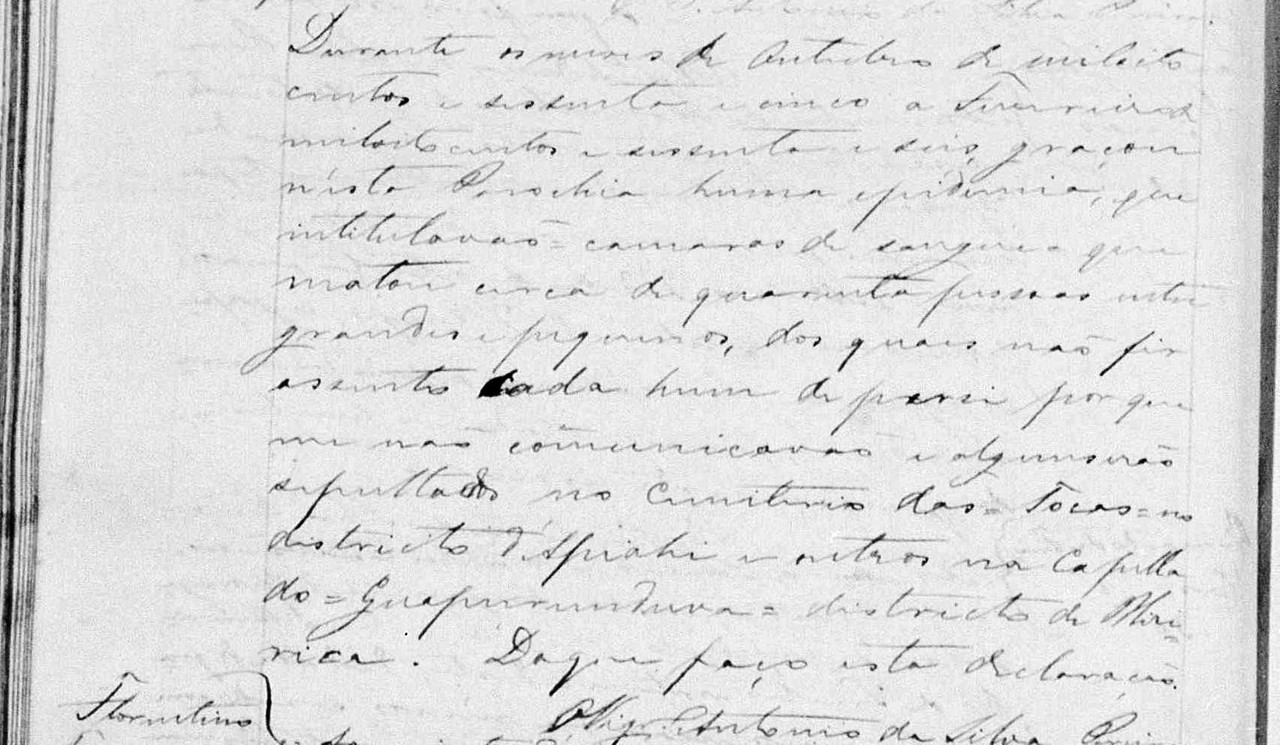 Antonio da Silva
Durante os mezes de Outubro de mil oito
centos e sessenta e cinco a Fevereiro de
mil oito centos e sessenta e seis, graçou
nésta Parochia huma epidemia, que
intitulavaõ = camaras de sangue = que
matou cerca de quarenta pessoas entre
grandes e pequenos, dos quais naõ fiz
assento cada hum de persi por que
me naõ comunicavaõ e alguns seraõ
sepultados no Cimiterio das = Tocas = no
districto d'Apiahi e outros na Capella
do = Guapurunduva = districto de Xiri=
rica. Do que faço esta declaraçaõ.
Florentino
O Vigrº Antonio da Silva